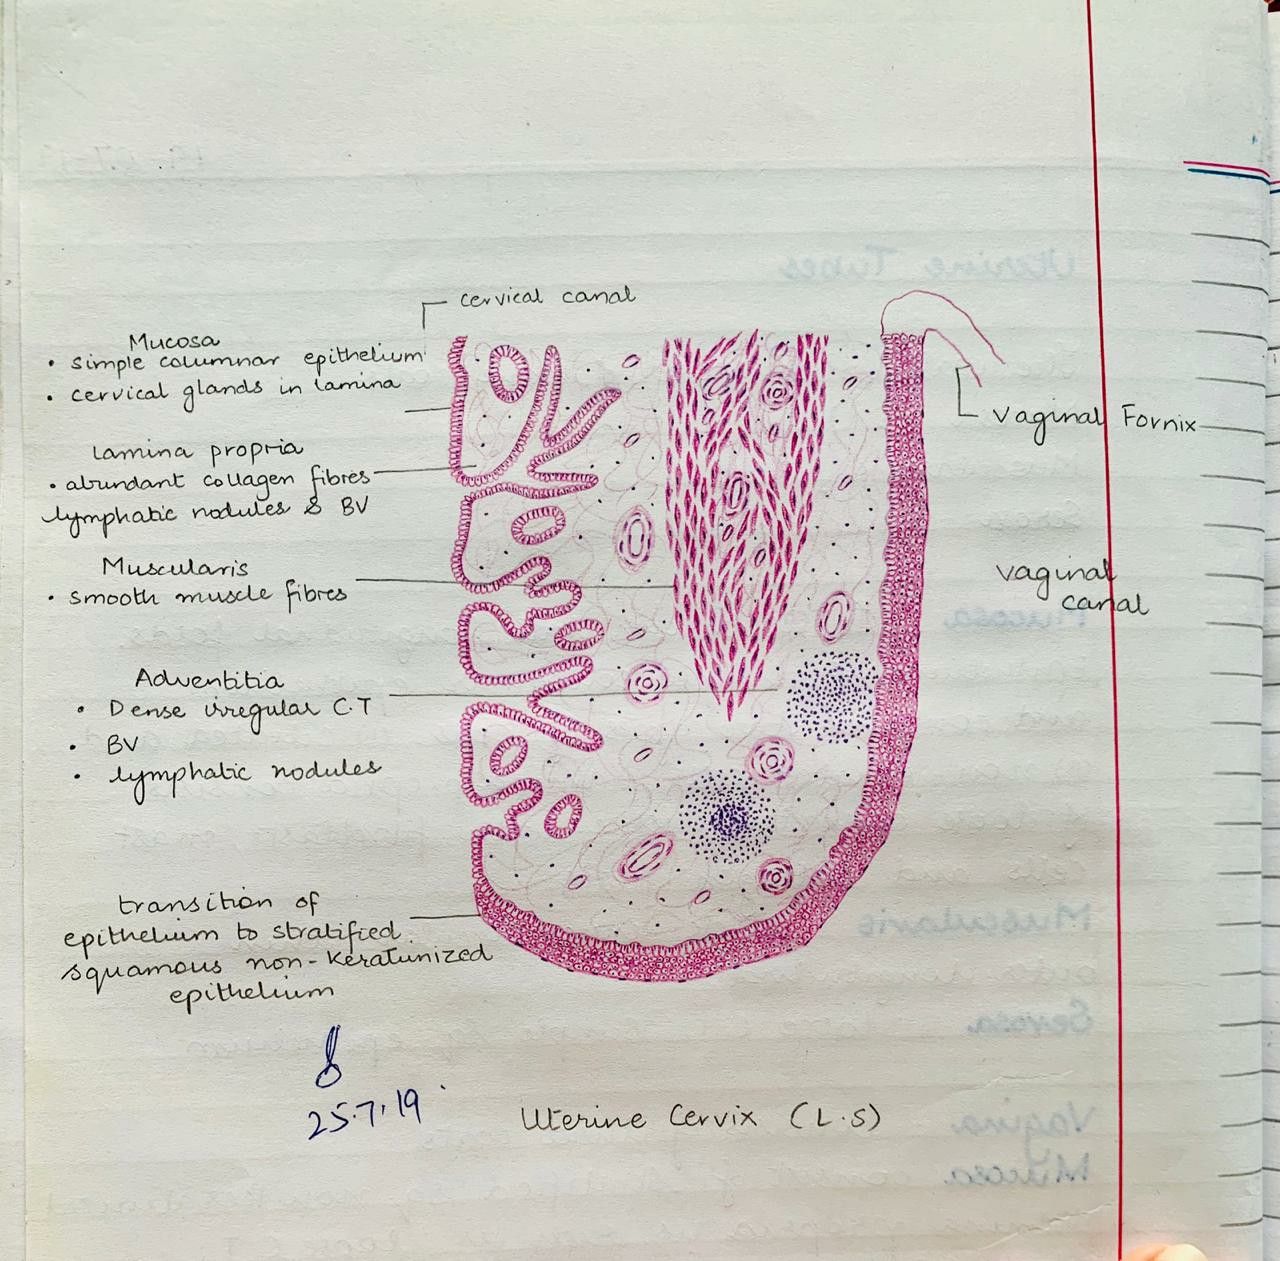 cervical canal
Mucosa
• simple columnar epithelium
• cervical glands in lamina
lamina propria
• abundant collagen fibres
lymphatic nodules & BV
Muscularis
• smooth muscle fibres
Adventitia
• Dense irregular C.T
• BV
• lymphatic nodules
transition of
epithelium to stratified
squamous non-keratinized
epithelium
vaginal Fornix
vaginal
canal
25.7.19
Uterine Cervix (L.S)
Uterine Tubes
Mucosa
Muscularis
Serosa
Vagina
Mucosa